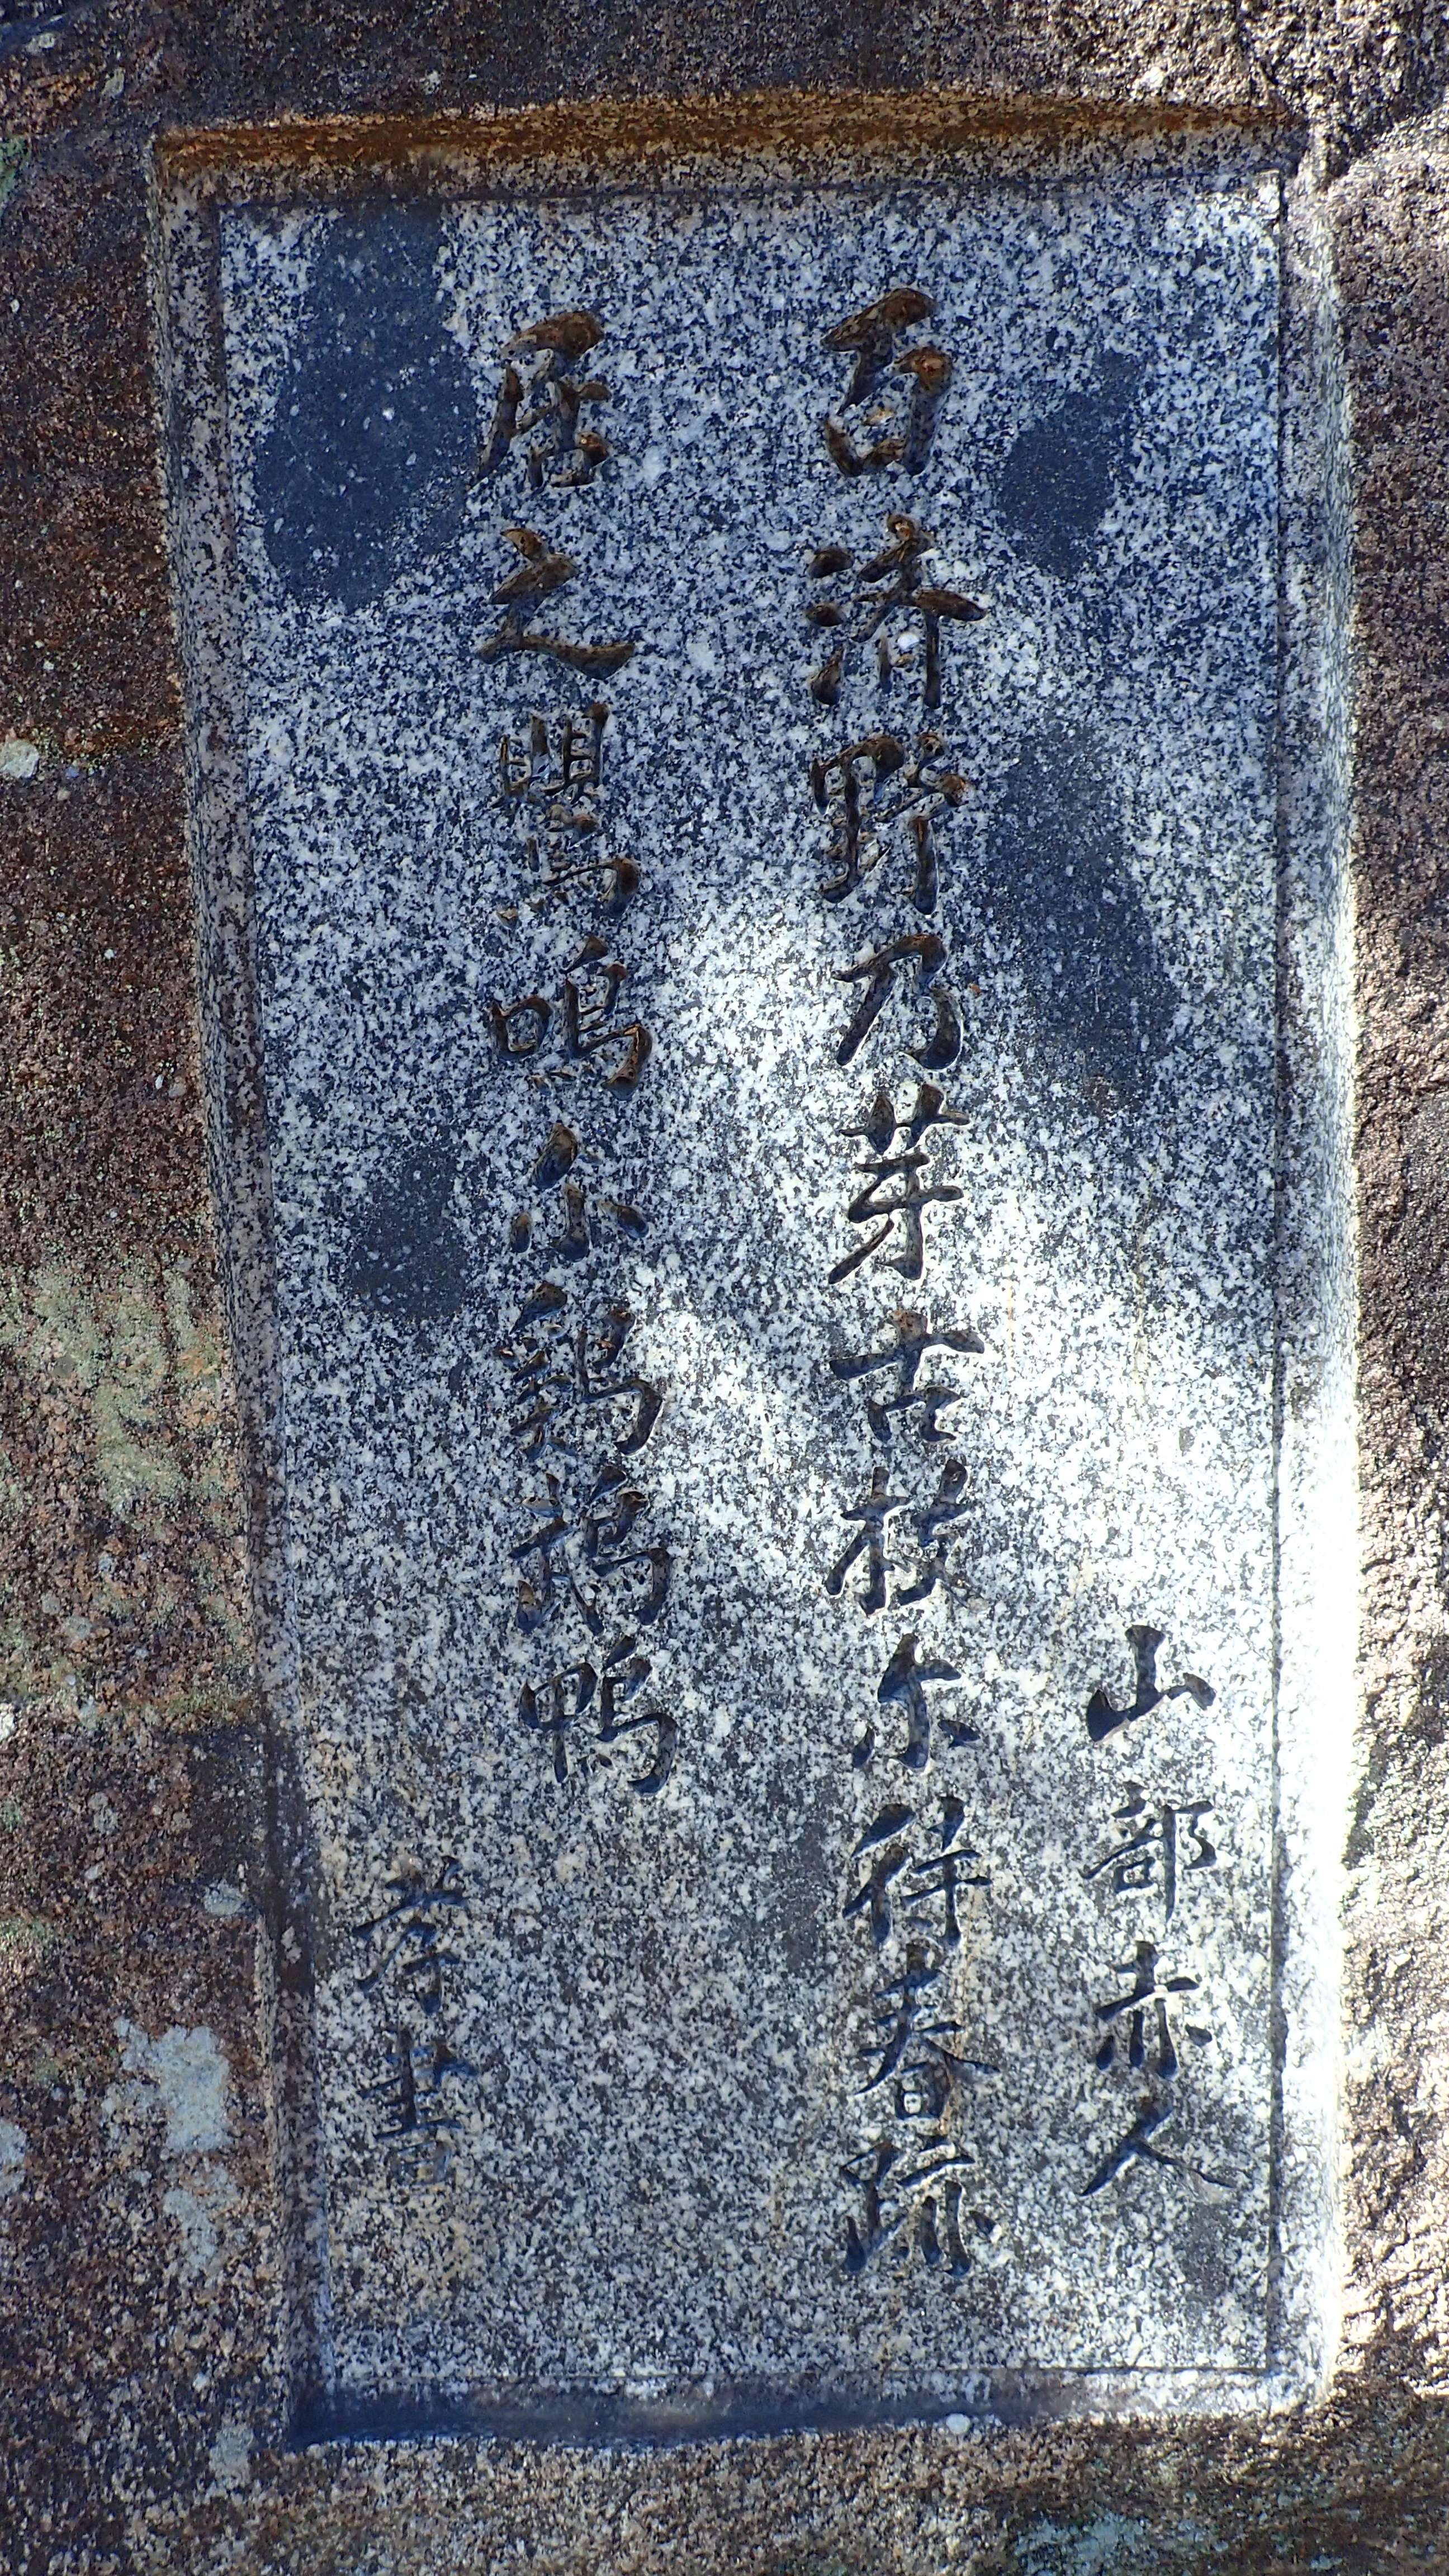 山部赤人
百済野乃芽古枝尓待春跡
居之鸎鳴尓鶏鵡鴨
孝書